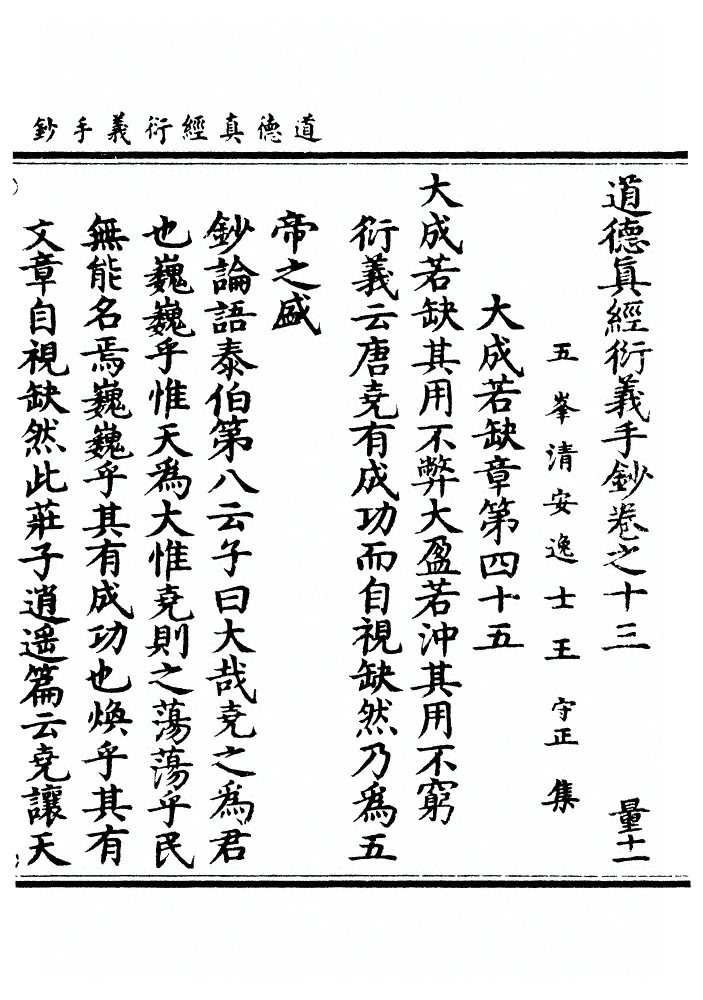 道德真經衍義手鈔
道德眞經衍義手鈔卷之十三 量十一
五峯清安逸士王守正集
大成若缺章第四十五
大成若缺其用不弊大盈若沖其用不窮
衍義云唐堯有成功而自視缺然乃爲五
帝之盛
鈔論語泰伯第八云子曰大哉堯之爲君
也巍巍乎惟天爲大惟堯則之蕩蕩乎民
無能名焉巍巍乎其有成功也煥乎其有
文章自視缺然此莊子逍遥篇云堯讓天